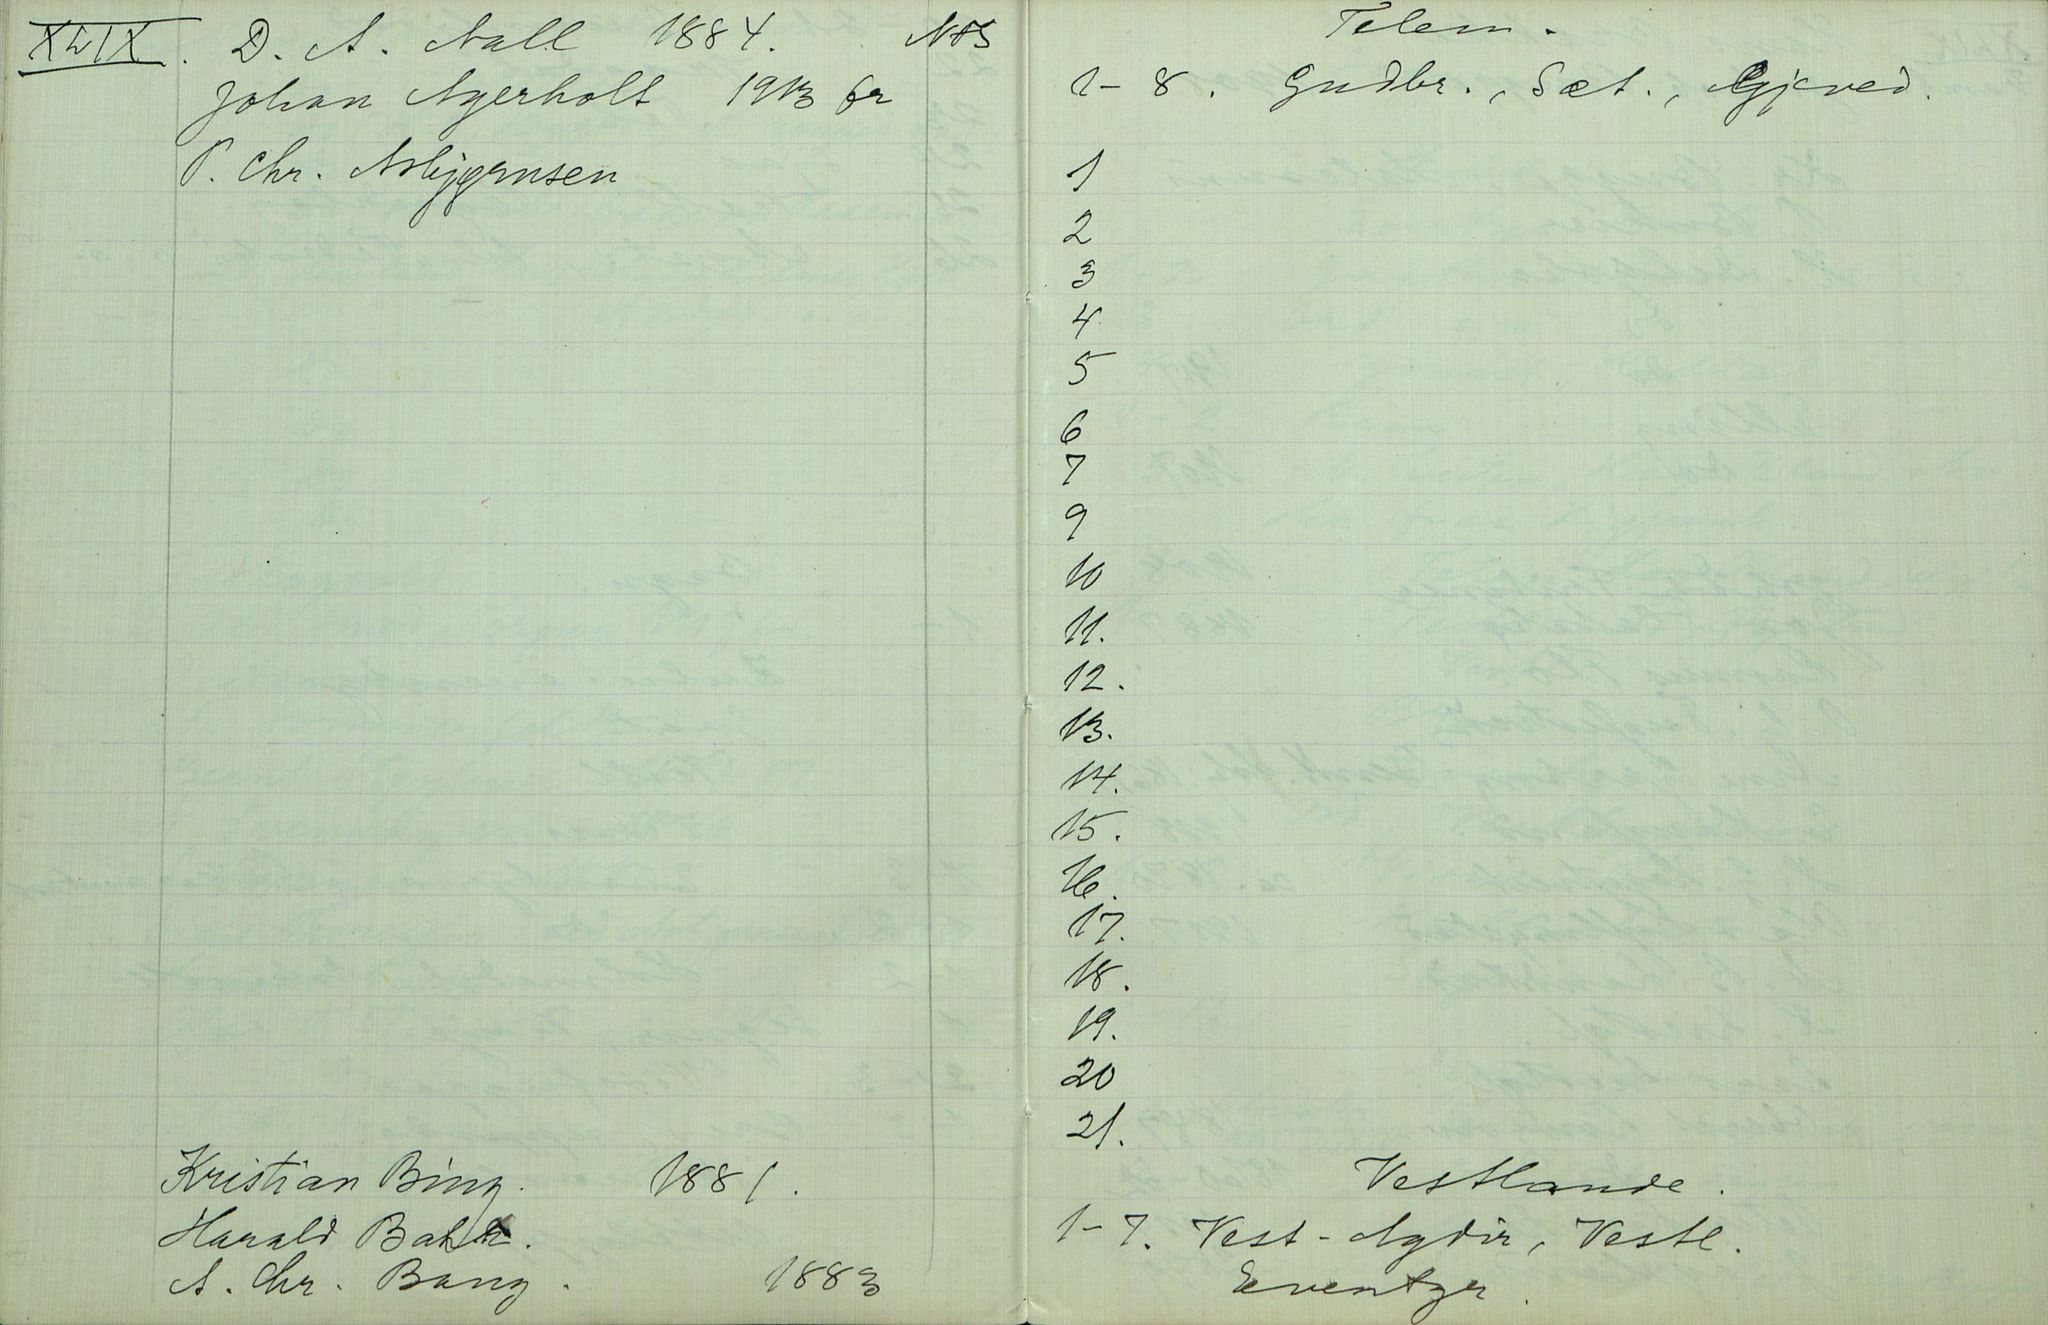 XLIX. D. A. Aall 1884. No 3
Johan Agerholt 1913 før
P. Chr. Asbjørnsen
Kristian Bing. 1881.
Harald Bakk.
A. Chr. Bang. 1883
Telem.
1-8. Gudbr., Sæt., Gjeved.
1
2
3
4
5
6
7
9
10
11.
12.
13.
14.
15.
16.
17.
18.
19.
20
21.
Vestlande.
1-7. Vest-Agdir, Vestl.
Eventyr.